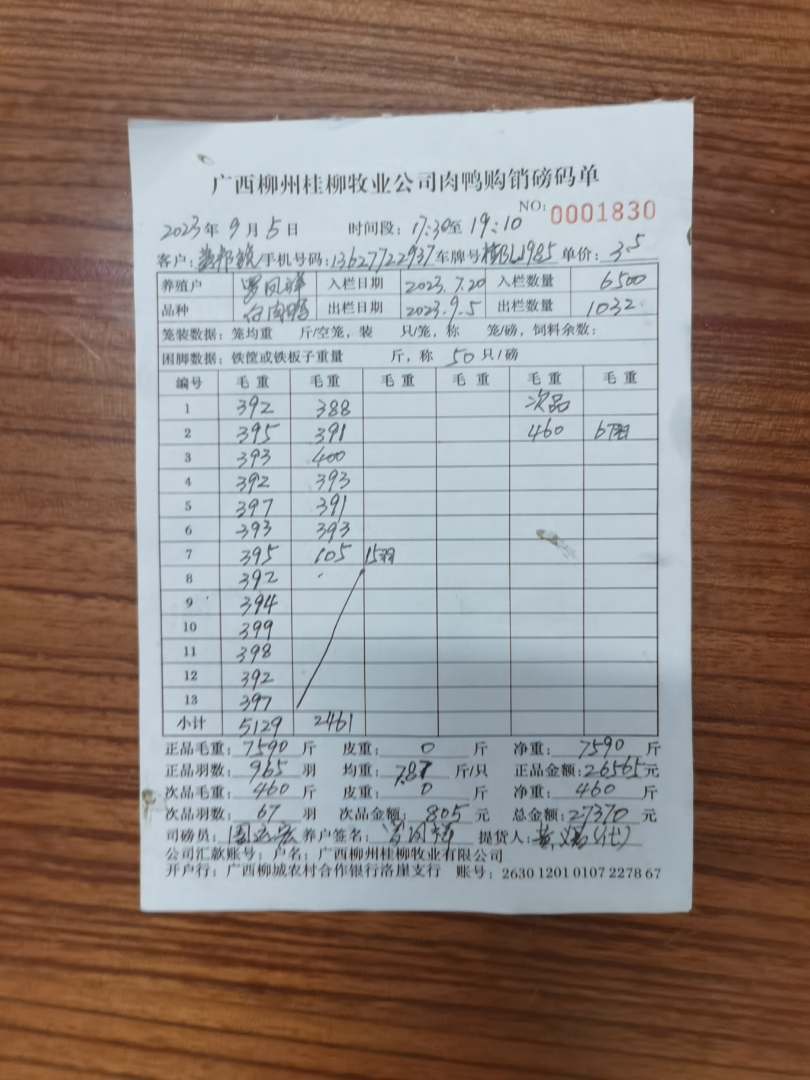 广西柳州桂柳牧业公司肉鸭购销磅码单
NO: 0001830
2023年 9月 5日 时间段: 17:30至 19:10
客户: 手机号码: 13627722937 车牌号 L1985 单价: 3.5
养殖户 罗凤 入栏日期 2023.7.20 入栏数量 6500
品种 白肉鸭 出栏日期 2023.9.5 出栏数量 1032
笼装数据: 笼均重 斤/空笼, 装 只/笼, 称 笼/磅, 饲料余数:
困脚数据: 铁筐或铁板子重量 斤, 称 50 只/磅
编号 毛重 毛重 毛重 毛重 毛重 毛重
1 392 388 次品
2 395 391 460 67羽
3 393 400
4 392 393
5 397 391
6 393 393
7 395 105 15羽
8 392
9 394
10 399
11 398
12 392
13 397
小计 5129 2461
正品毛重: 7590 斤 皮重: 0 斤 净重: 7590 斤
正品羽数: 965 羽 均重: 7.87 斤/只 正品金额: 26565元
次品毛重: 460 斤 皮重: 0 斤 净重: 460 斤
次品羽数: 67 羽 次品金额: 805 元 总金额: 27370 元
司磅员: 养户签名: 提货人: 黄 (代)
公司汇款账号: 户名: 广西柳州桂柳牧业有限公司
开户行: 广西柳城农村合作银行洛崖支行 账号: 2630 1201 0107 2278 67